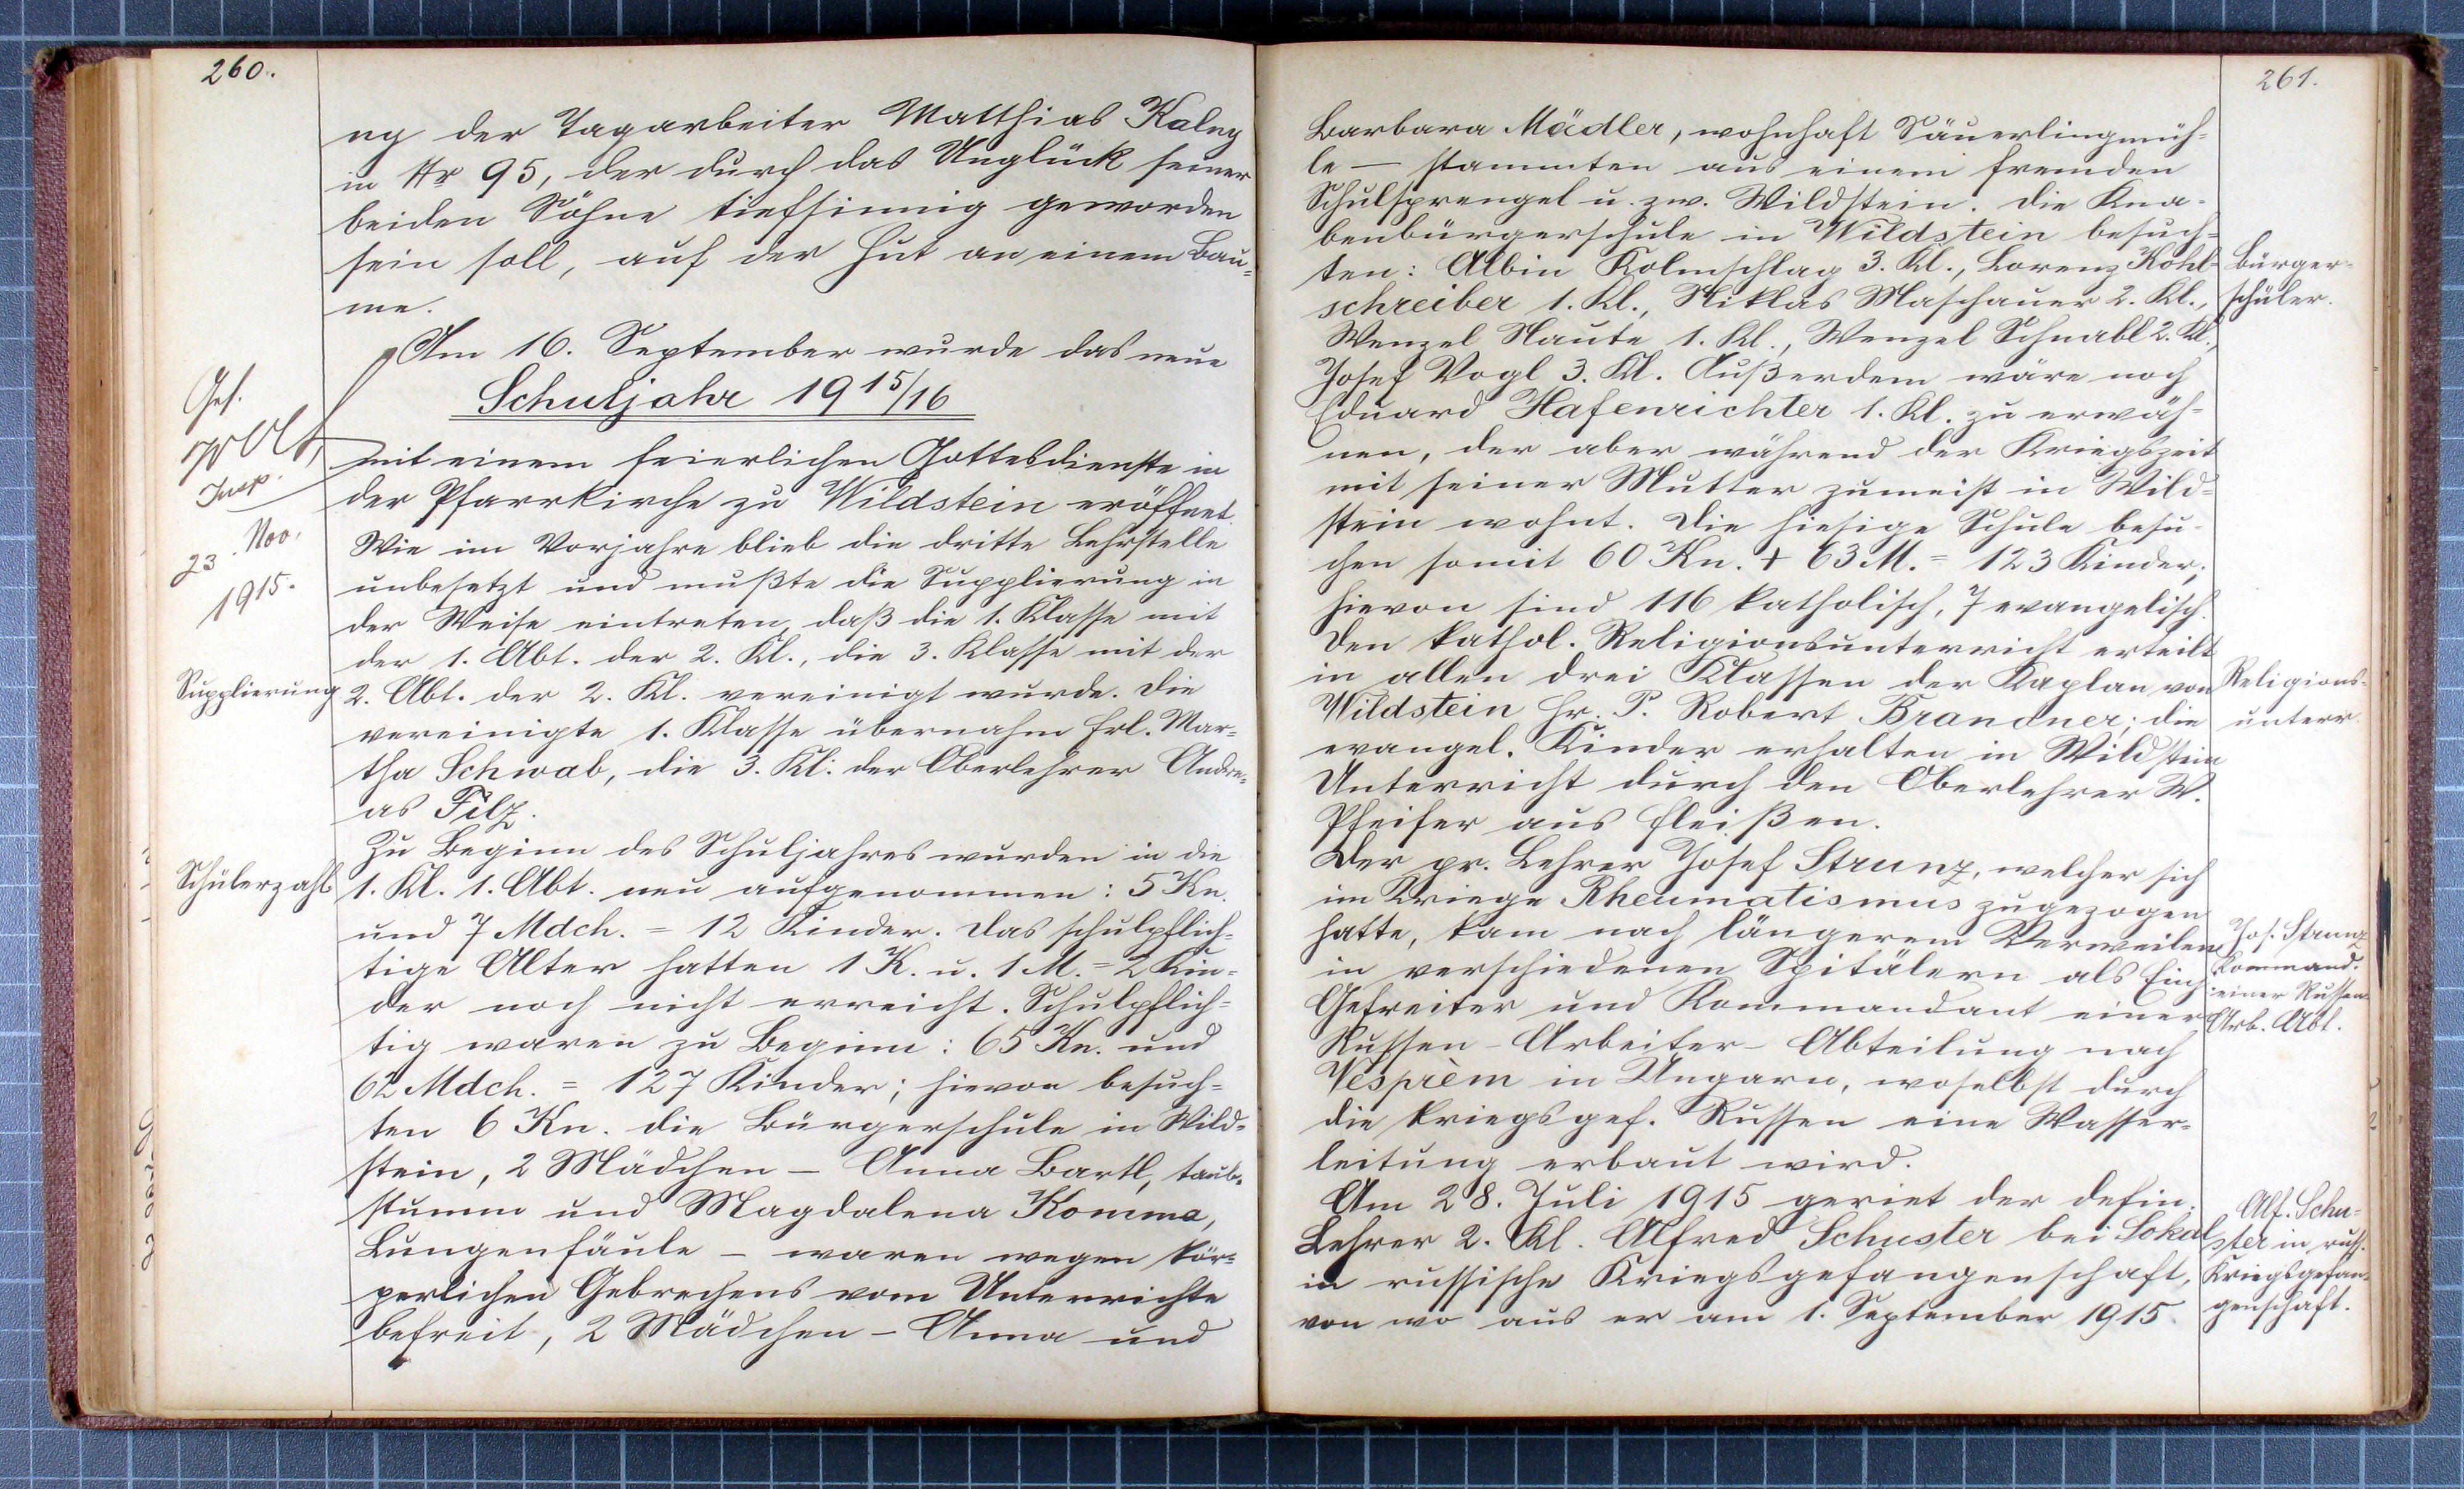 260.
ng der Tagarbeiter Matthias Kalny
in Nr 95, der durch das Unglück seiner
beiden Söhne tiefsinnig geworden
sein soll, auf der Hut an einem Bau-
me.
Am 16. September wurde das neue
Schuljahr 1915/16
mit einem feierlichen Gottesdienste in
der Pfarrkirche zu Wildstein eröffnet.
Wie im Vorjahre blieb die dritte Lehrstelle
unbesetzt und mußte die Supplierung in
der Weise eintreten, daß die 1. Klasse mit
der 1. Abt. der 2. Kl., die 3. Klasse mit der
2. Abt. der 2. Kl. vereinigt wurde. Die
vereinigte 1. Klasse übernahm Frl. Mar-
tha Schwab, die 3. Kl. der Oberlehrer Andre-
as Filz.
Zu Beginn des Schuljahres wurden in die
1. Kl. 1. Abt. neu aufgenommen: 5 Kn.
und 7 Mdch. = 12 Kinder. Das schulpflich-
tige Alter hatten 1 K. u. 1 M. = 2 Kin-
der noch nicht erreicht. Schulpflich-
tig waren zu Beginn: 65 Kn. und
62 Mdch. = 127 Kinder; hievon besuch-
ten 6 Kn. die Bürgerschule in Wild-
stein, 2 Mädchen – Anna Bartl, taub-
stumm und Magdalena Komma,
Lungenfäule – waren wegen kör-
perlichen Gebrechens vom Unterrichte
befreit, 2 Mädchen – Anna und
Ges.
Insp.
23. Nov.
1915.
Supplierung
Schülerzahl
261.
Barbara Mädler, wohnhaft Säuerlingmüh-
le – stammten aus einem fremden
Schulsprengel u. zw. Wildstein. Die Kna-
benbürgerschule in Wildstein besuch-
ten: Albin Kolmschlag 3. Kl., Lorenz Kohl-
schreiber 1. Kl., Niklas Maschauer 2. Kl.,
Wenzel Naute 1. Kl., Wenzel Schnabl 2. Kl.,
Josef Vogl 3. Kl. Außerdem wäre noch
Eduard Hafenrichter 1. Kl. zu erwäh-
nen, der aber während der Kriegszeit
mit seiner Mutter zumeist in Wild-
stein wohnt. Die hiesige Schule besu-
chen somit 60 Kn. + 63 M. = 123 Kinder;
hievon sind 116 katholisch, 7 evangelisch.
Den kathol. Religionsunterricht erteilt
in allen drei Klassen der Kaplan von
Wildstein Hr. P. Robert Brandner; die
evangel. Kinder erhalten in Wildstein
Unterricht durch den Oberlehrer W.
Pfeifer aus Fleißen.
Der pr. Lehrer Josef Strunz, welcher sich
im Kriege Rheumatismus zugezogen
hatte, kam nach längerem Verweilen
in verschiedenen Spitälern als Einj.
Gefreiter und Kommandant einer
Russen-Arbeiter-Abteilung nach
Vesprèm in Ungarn, woselbst durch
die kriegsgef. Russen eine Wasser-
leitung erbaut wird.
Am 28. Juli 1915 geriet der defin.
Lehrer 2. Kl. Alfred Schuster bei Sokal
in russische Kriegsgefangenschaft,
von wo aus er am 1. September 1915
Bürger-
schüler.
Religions-
unterr.
Jos. Strunz
Kommand.
einer Russen
Arb. Abt.
Alf. Schu-
ster in russ.
Kriegsgefan-
genschaft.